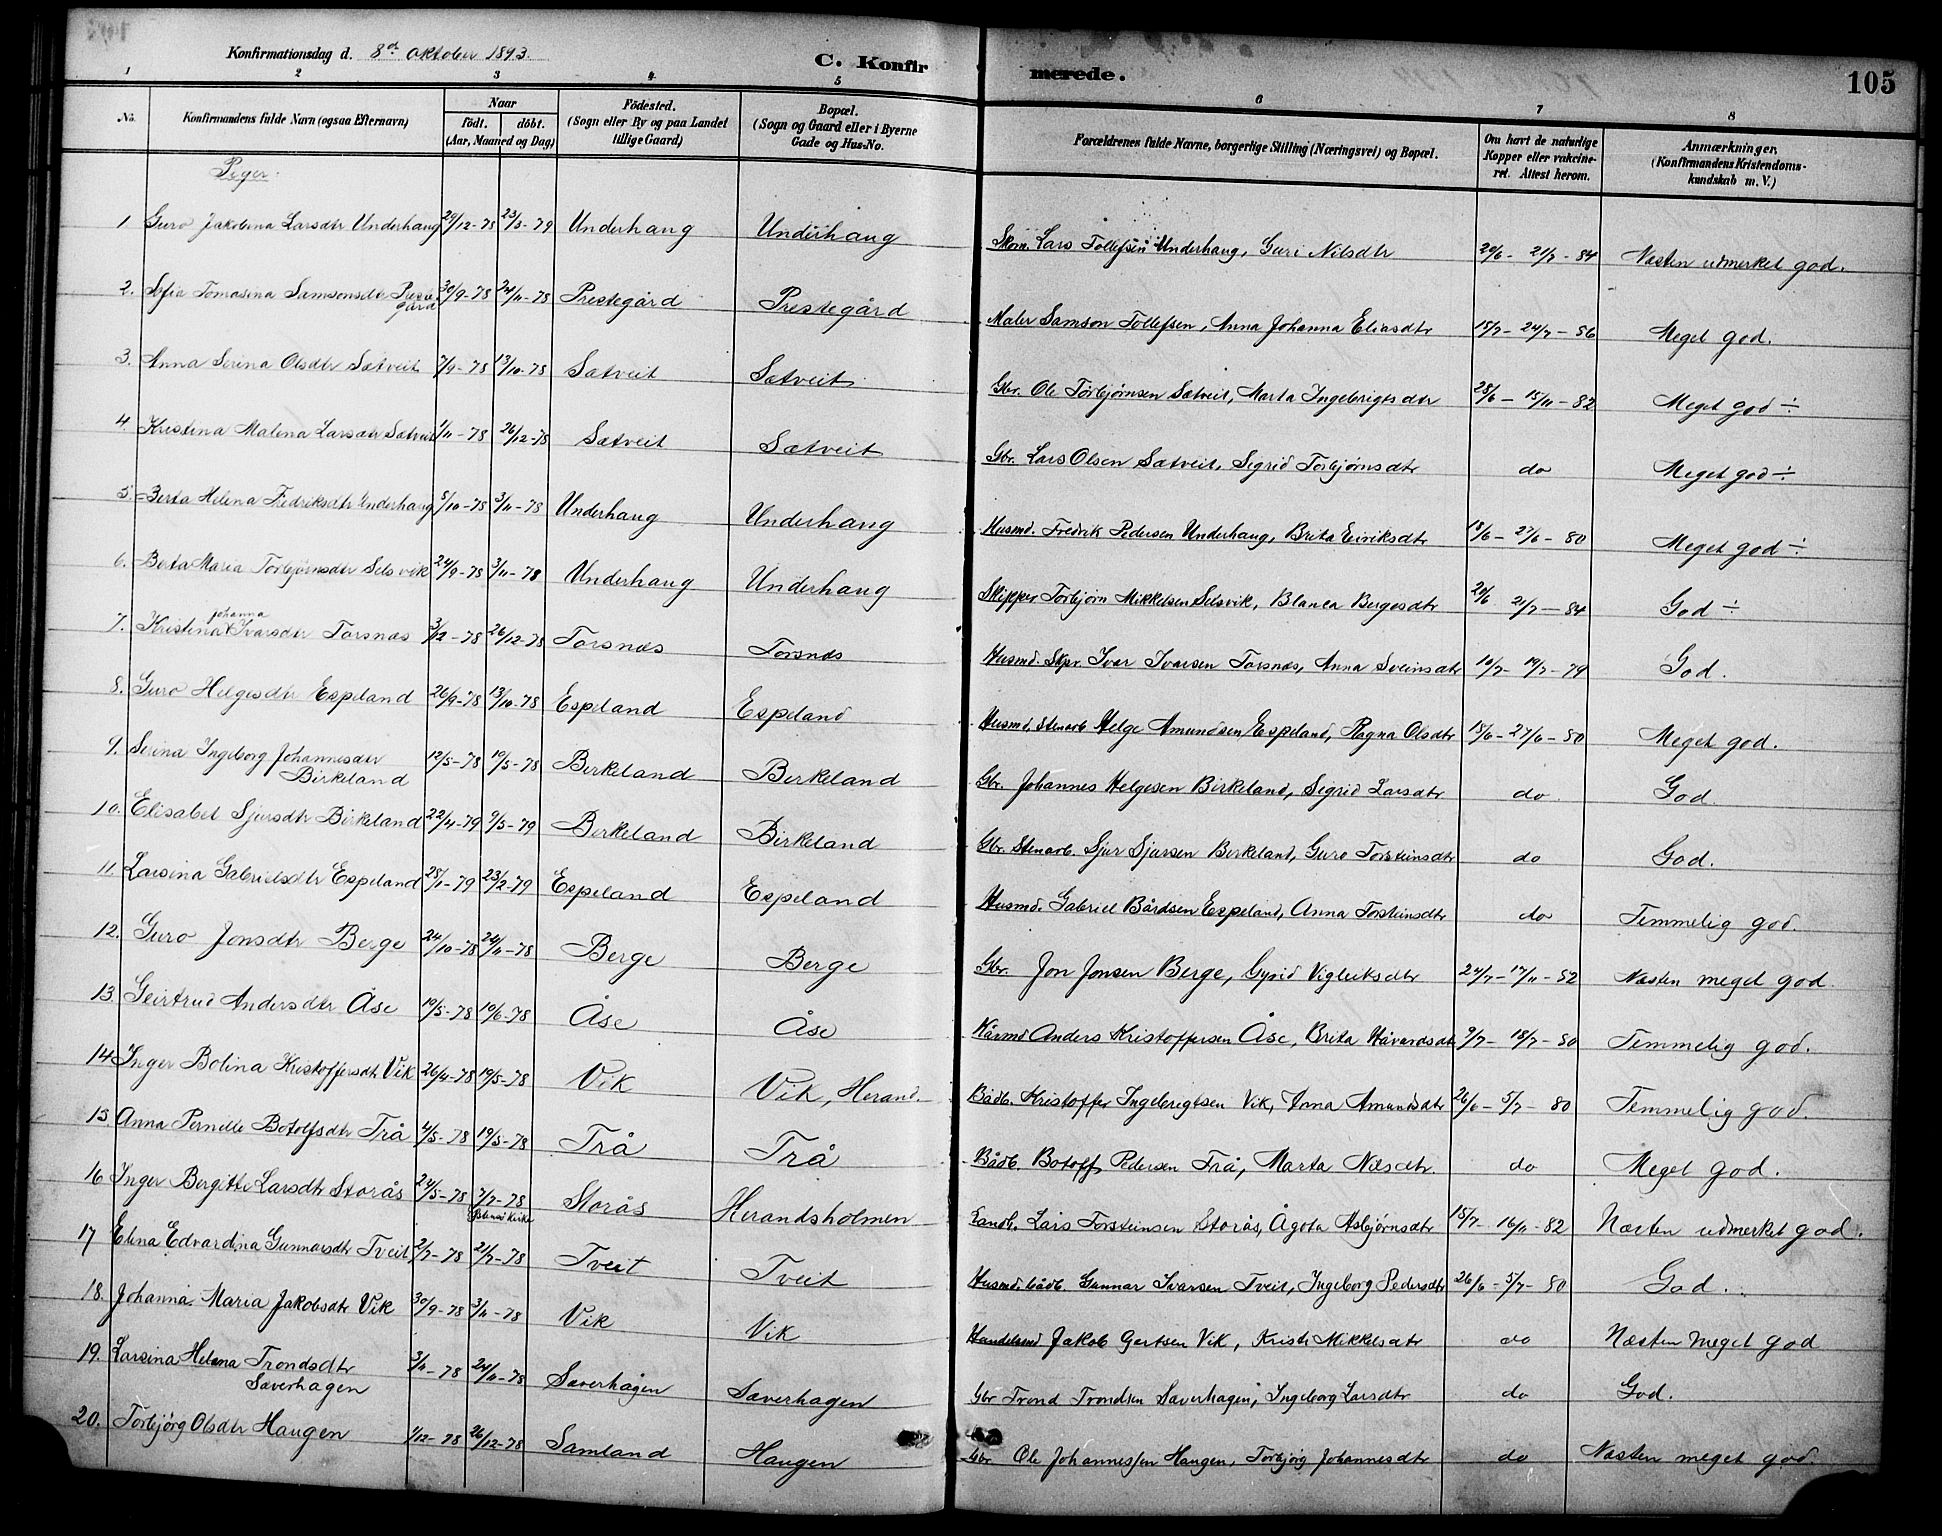 Konfirmationsdag d. 8de Oktober 1893.
C. Konfirmerede.
105
1 2 3 4 5 6 7 8
No.
Konfirmandens fulde Navn (ogsaa Efternavn)
Naar
födt. döbt.
(Aar, Maaned og Dag)
Födested.
(Sogn eller By og paa Landet
tillige Gaard)
Bopæl.
(Sogn og Gaard eller i Byerne
Gade og Hus-No.
Forældrenes fulde Navne, borgerlige Stilling (Næringsvei) og Bopæl.
Om havt de naturlige
Kopper eller vakcine-
ret. Attest herom.
Anmærkninger.
(Konfirmandens Kristendoms-
kundskab m. V.)
Piger.
1. Guro Jakobina Larsdtr Underhaug 29/12-78 23/3-79 Underhaug Underhaug Skom. Lars Tollefsen Underhaug, Guri Nilsdtr 20/6 - 21/7 - 84 Næsten udmerket god.
2. Sofia Tomasina Samsonsdtr Prestegård 30/9-78 24/11-78 Prestegård Prestegård Maler Samson Tollefsen, Anna Johanna Eliasdtr 15/7 - 24/7 - 86 Meget god.
3. Anna Serina Olsdtr Sætveit 7/9-78 13/10-78 Sætveit Sætveit Gbr. Ole Torbjørnsen Sætveit, Marta Ingebrigtsdtr 28/6 - 15/11 - 82 Meget god ÷
4. Kristina Malena Larsdtr Sætveit 1/11-78 26/12-78 Sætveit Sætveit Gbr. Lars Olsen Sætveit, Sigrid Torbjørnsdtr do Meget god ÷
5. Berta Helena Fredriksdtr Underhaug 5/10-78 3/11-78 Underhaug Underhaug Husmd. Fredrik Pedersen Underhaug, Brita Eiriksdtr 18/6 - 27/6 - 80 Meget god ÷
6. Berta Maria Torbjørnsdtr Selsvik 24/9-78 3/11-78 Underhaug Underhaug Skipper Torbjørn Mikkelsen Selsvik, Blanca Bergesdtr 20/6 21/7 - 84 God ÷
7. Kristina Johanna Ivarsdtr Torsnæs 3/12-78 26/12-78 Torsnæs Torsnæs Husmd. Skpr. Ivar Ivarsen Torsnæs, Anna Sveinsdtr 10/7 - 19/7 - 79 God.
8. Guro Helgesdtr Espeland 26/9-78 13/10-78 Espeland Espeland Husmd. Stenarb. Helge Amundsen Espeland, Ragna Olsdtr 18/6 - 27/6 - 80 Meget god.
9. Serina Ingeborg Johannesdtr
Birkeland 12/5-78 19/5-78 Birkeland Birkeland Gbr. Johannes Helgesen Birkeland, Sigrid Larsdtr do God.
10. Elisabet Sjursdtr Birkeland 22/4-79 9/5-79 Birkeland Birkeland Gbr. Stenarb. Sjur Sjursen Birkeland, Guro Torsteinsdtr do God.
11. Larsina Gabrielsdtr Espeland 28/1-79 23/2-79 Espeland Espeland Husmd. Gabriel Bårdsen Espeland, Anna Torsteinsdtr do Temmelig god.
12. Guro Jonsdtr Berge 24/10-78 24/11-78 Berge Berge Gbr. Jon Jonsen Berge, Gyrid Vigleiksdtr 24/7 - 17/11 - 82 Næsten meget god.
13. Geirtrud Andersdtr Åse 19/5-78 19/6-78 Åse Åse Kårmd Anders Kristoffersen Åse, Brita Håvardsdtr 9/7 - 18/7 - 80 Temmelig god.
14. Inger Bolina Kristoffersdtr Vik 26/4-78 19/5-78 Vik Vik, Herand. Bådb. Kristoffer Ingebrigtsen Vik, Anna Amundsdtr 26/6 - 5/7 - 80 Temmelig god.
15 Anna Pernille Botolfsdtr Trå 4/5-78 19/5-78 Trå Trå Bådb. Botolf Pedersen Trå, Marta Nilsdtr do Meget god.
16 Inger Bergitte Larsdtr Storås 24/5-78 7/7-78 Storås Herandsholmen Landb. Lars Torsteinsen Storås, Ågota Asbjørnsdtr 18/7 - 16/11 - 82 Næsten udmerket god.
17 Elina Edvardina Gunnarsdtr Tveit 2/7-78 21/7-78 Tveit Tveit Husmd. bådb. Gunnar Ivarsen Tveit, Ingeborg Pedersdtr 26/6 - 5/7 - 80 God.
18. Johanna Maria Jakobsdtr Vik 30/9-78 3/11-78 Vik Vik Handelsmd Jakob Gertsen Vik, Kristi Mikkelsdtr do Næsten meget god
19. Larsina Helena Trondsdtr
Saverhagen 3/11-78 24/11-78 Saverhagen Saverhagen Gbr Trond Trondsen Saverhagen, Ingeborg Larsdtr do God.
20. Torbjørg Olsdtr Haugen 1/12-78 26/12-78 Samland Haugen Gbr Ole Johannessen Haugen, Torbjørg Johannesdtr do Næsten meget god.